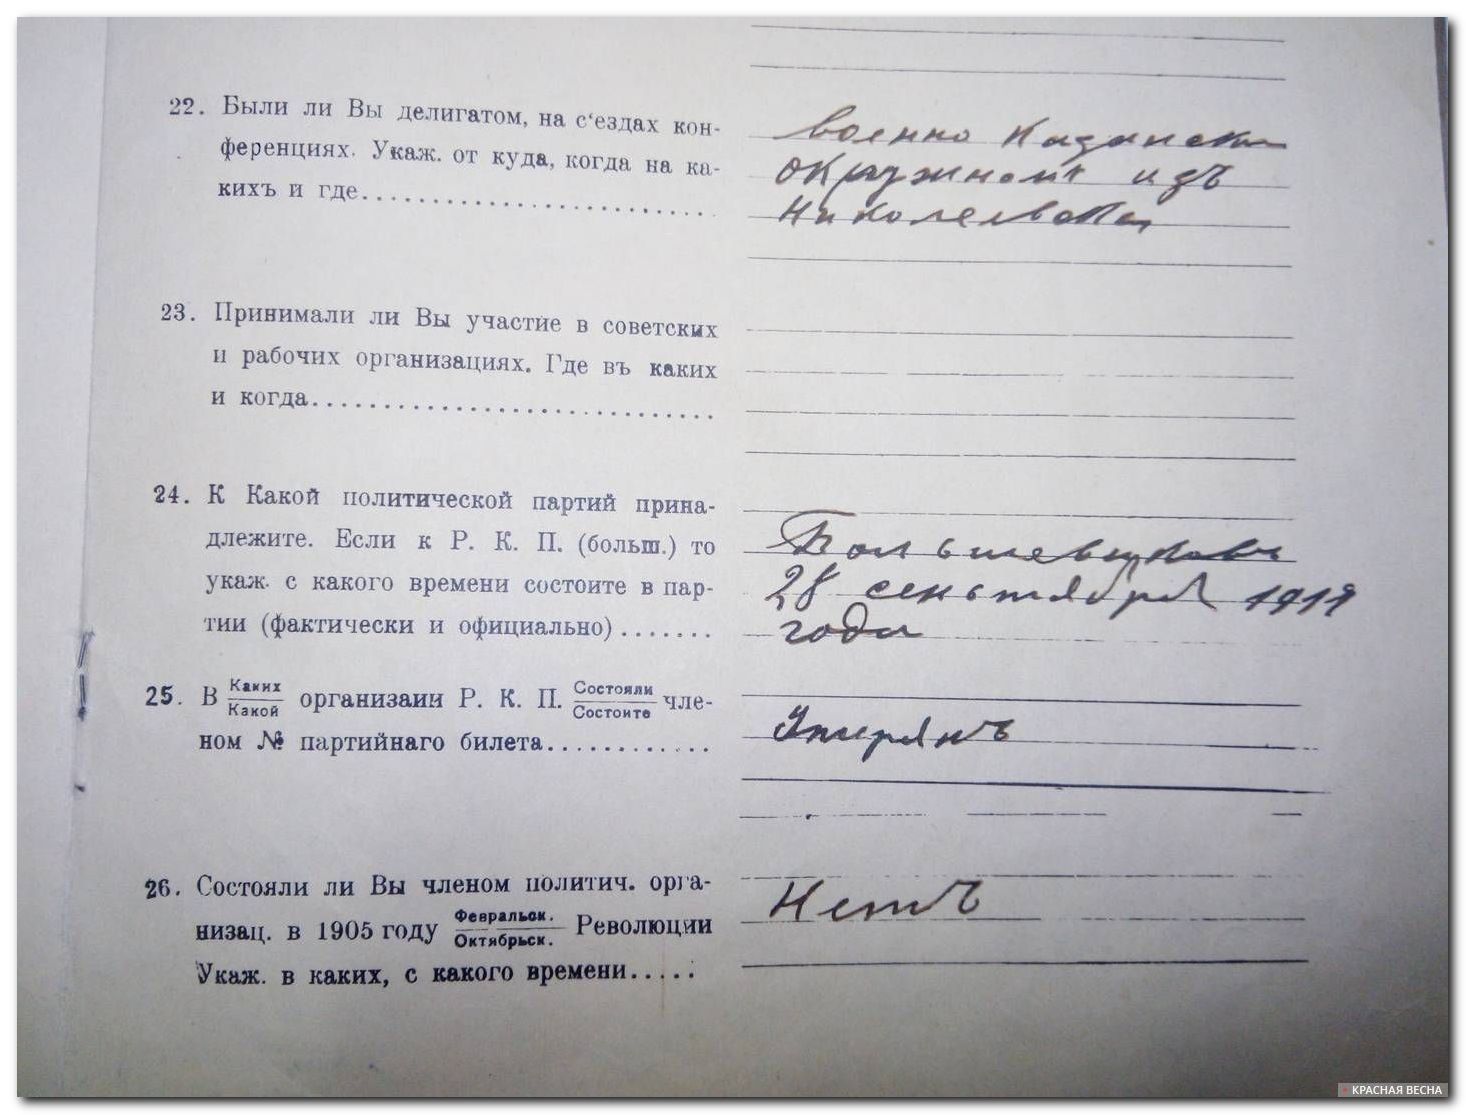 22. Были ли Вы делигатом, на с‘ездах кон-
ференциях. Укаж. от куда, когда на ка-
кихъ и где........................
военно Казански
окружномъ изъ
Николаевска
23. Принимали ли Вы участие в советских
и рабочих организациях. Где въ каких
и когда............................
24. К Какой политической партий прина-
длежите. Если к Р. К. П. (больш.) то
укаж. с какого времени состоите в пар-
тии (фактически и официально).......
Большевиковъ
28 сентября
года
25. В Каких/Какой организаии Р. К. П. Состояли/Состоите чле-
ном № партийнаго билета............
26. Состояли ли Вы членом политич. орга-
низац. в 1905 году Февральск./Октябрьск. Революции
Укаж. в каких, с какого времени.....
Нетъ
КРАСНАЯ ВЕСНА